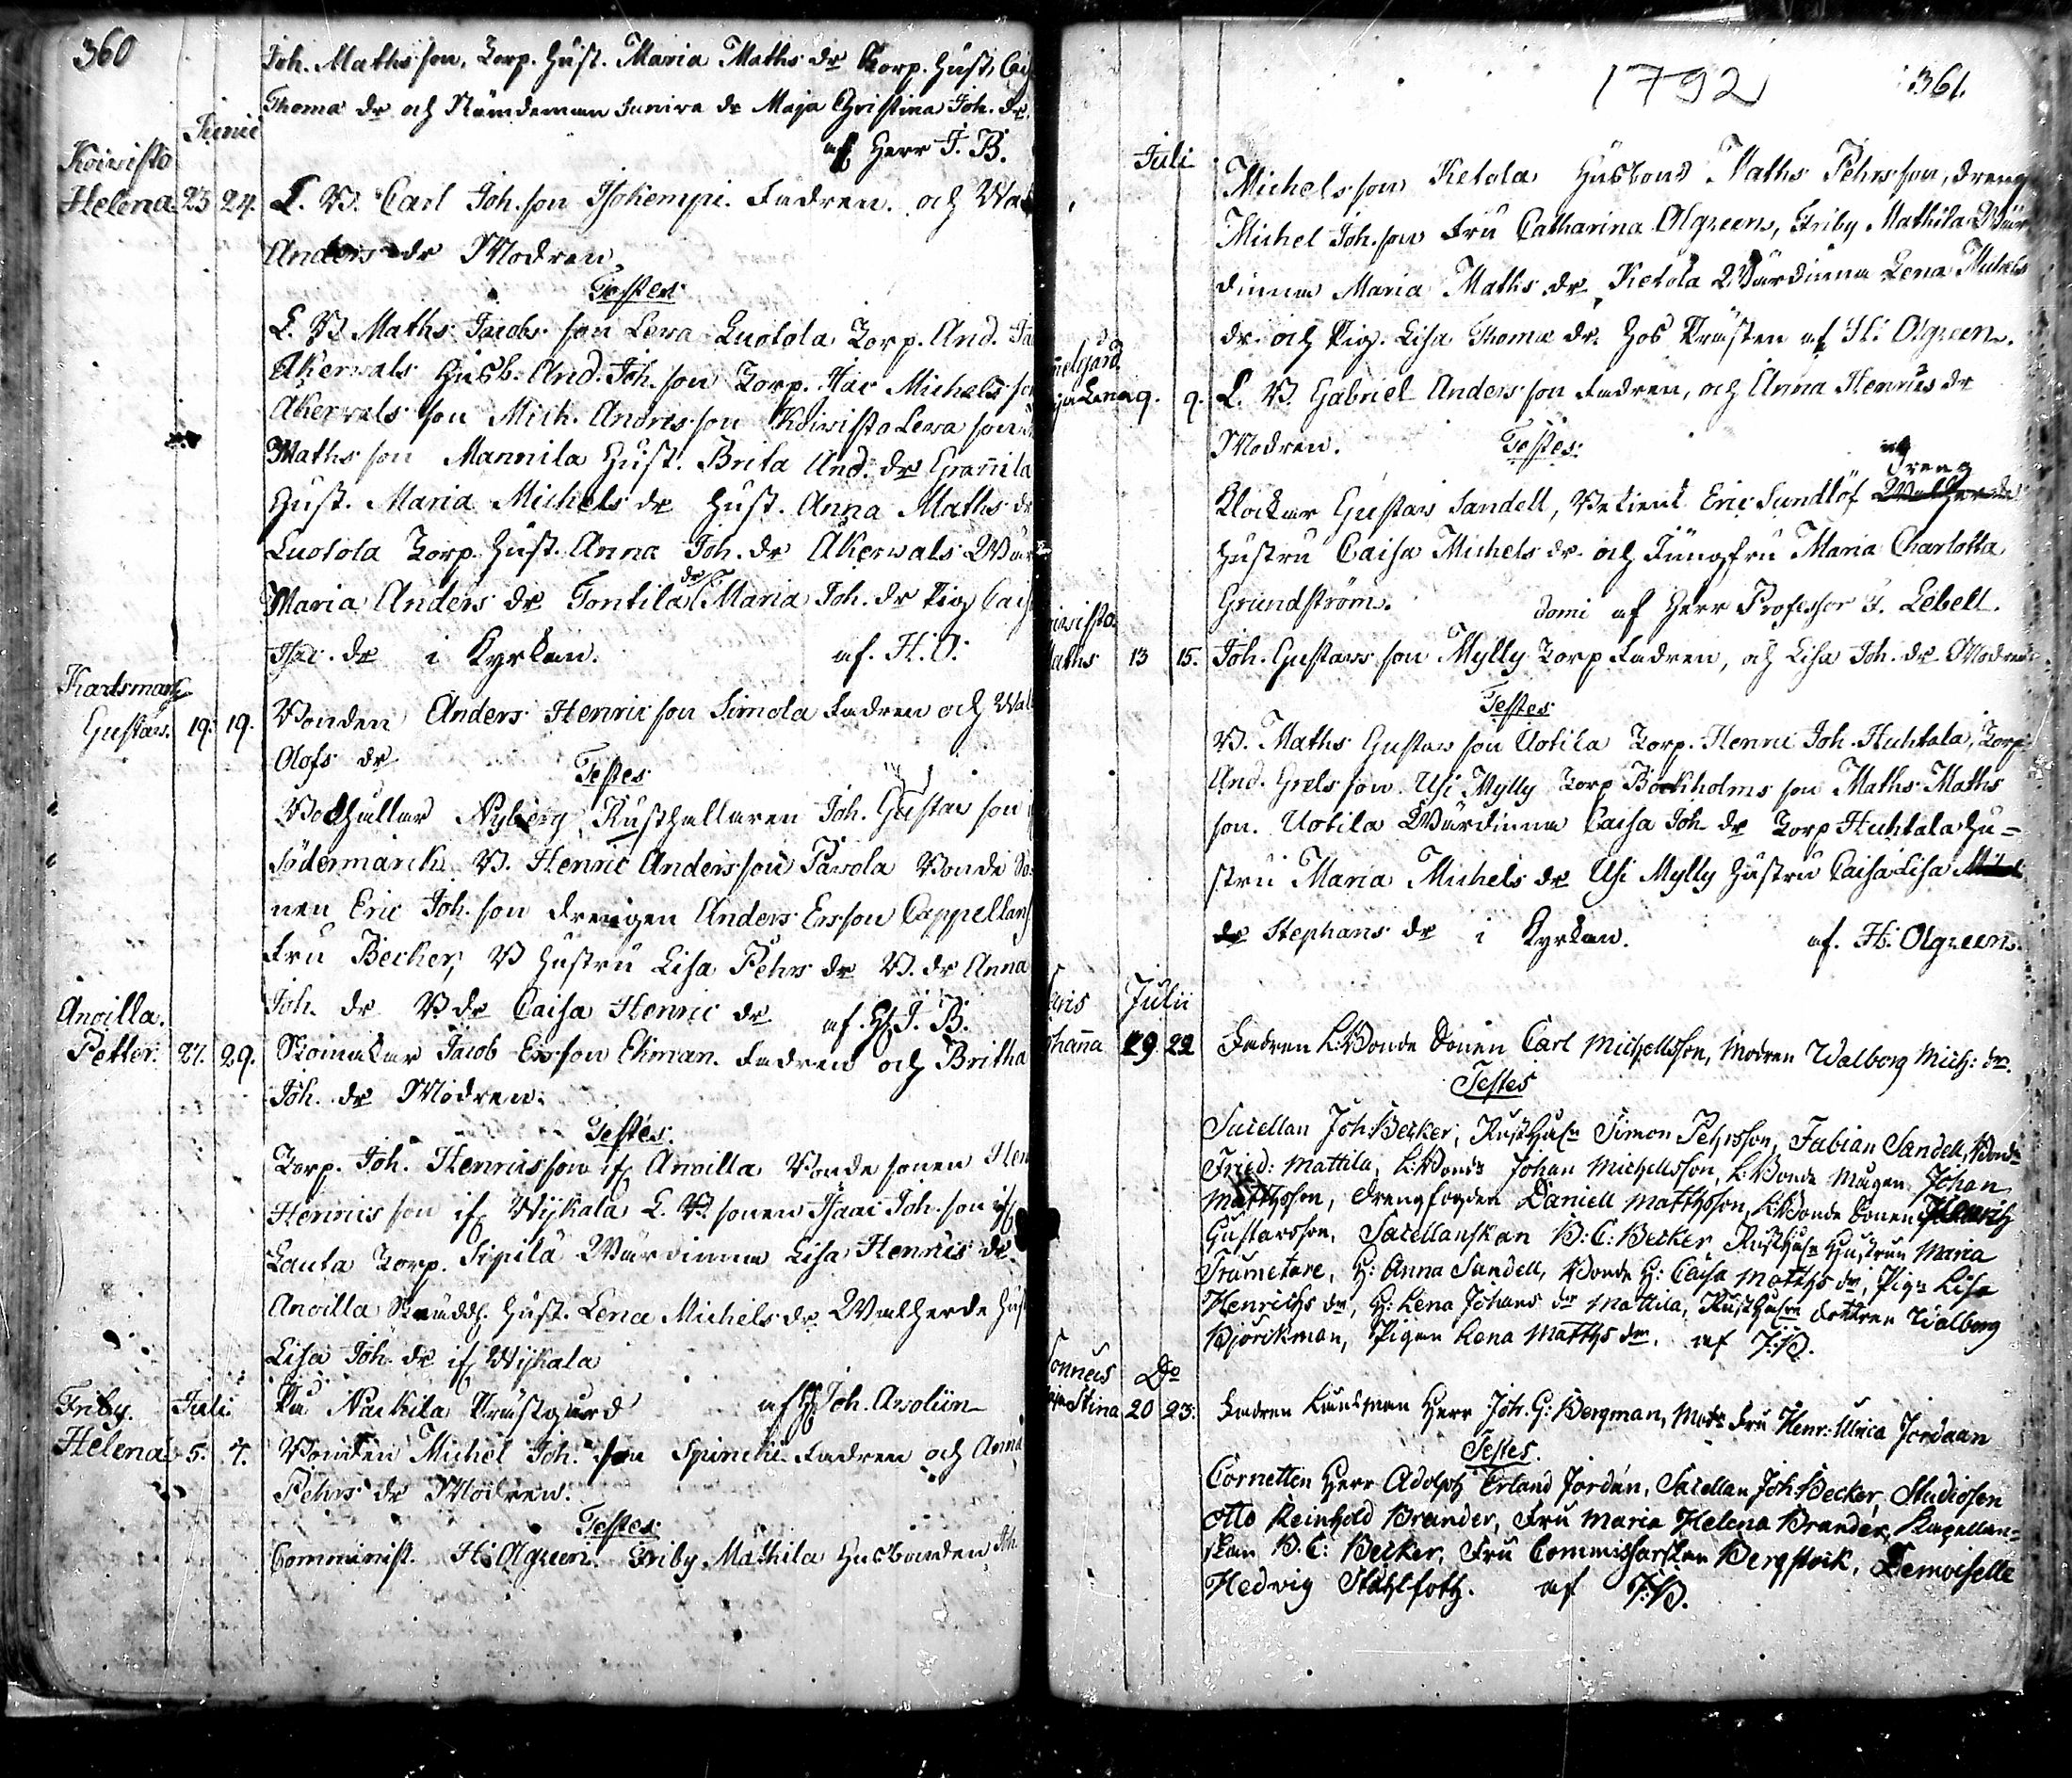 360
Joh. Mathsson, Torp. Hust. Maria Maths dr Torp. Hust.
Thoma dr och Nämdeman Junira dr Maja Christina Joh. dr
af Herr J. B.
Junii
Koivisto
Helena. 23 24. L. B. Carl Joh. son Isokempi. Fadren. och
Anders dr Modren.
Testes
L. B. Maths Jacobs son Lewa Luotola Torp. And.
Åkervals Husb. And. Joh. son Torp. Isac Michels
Åkervals son Mich. Andersson Koivisto Lewa son
Maths son Mannila Hust. Brita And. dr Grannila
Hust. Maria Michels dr Hust. Anna Maths dr
Luotola Torp. Hust. Anna Joh. dr Åkerwals
Maria Anders dr Tontila dr Maria Joh. dr Pig.
Isac. dr i Kyrkan. af. H. O.
Karlsmark
Gustav. 19. 19. Bonden Anders Henric son Simola Fadren och
Olofs dr
Testes
Bokhållar Nyberg, Rusthållaren Joh. Gustav son
Södermarck B. Henric Anders son Pavola Bonde
nen Eric Joh. son drengen Anders Ersson Cappellans
Fru Becker, B Hustru Lisa Pehrs dr B. dr Anna
Joh. dr B dr Caisa Henric dr af. H J. B.
Anoilla.
Petter. 27. 29. Skomakar Jacob Ersson Ekman. Fadren och Britha
Joh. dr Modren.
Testes.
Torp. Joh. Henricsson if. Anoilla Bonde sonen
Henrics son if. Wijkala L. B. sonen Isaac Joh. son if
Lauta Torp. Sipilä Wärdinna Lisa Henrics dr
Anoilla Hust. Lena Michels dr
Lisa Joh. dr if Wijkala
På Nackila Prästgård af H Joh. Avolin
Friby. Juli.
Helena 5. 7. Bonden Michel Joh. son Spinkki Fadren och Anna
Pehrs dr Modren.
Testes
Comminist. H. Olgreen. Friby Mathila Husbonden Joh
1792
361.
Juli
Michels son Ketola Husbond Maths Pehrs son, dreng
Michel Joh. son Fru Catharina Olgreen, Friby Mathila Wär
dinna Maria Maths dr, Ketola Wärdinna Lena Michels
dr och Pig. Lisa Thoma dr hos Prästen af H. Olgreen.
Lena 9. 9. L. B. Gabriel Anders son Fadren, och Anna Henrics dr
Modren. Testes.
dreng
Klockar Gustav Sandell, Eric Sundlöf
Hustru Caisa Michels dr och Jungfru Maria Charlotta
Grundström. domi af Herr Professor J. Lebell.
Maths 13 15. Joh. Gustavs son Mylly Torp Fadren, och Lisa Joh. dr Modren
Testes
B. Maths Gustavs son Uotila Torp. Henric Joh. Huhtala, Torp
And. Grels son. Usi Mylly Torp Bockholms son Maths Maths
son. Uotila Wärdinna Caisa Joh dr Torp Huhtala Hu-
stru Maria Michels dr Usi Mylly Hustru Caisa Lisa
dr Stephans dr i Kyrkan. af. H: Olgreen.
Julii
Johanna 19 22 Fadren L:Bonde Sonen Carl Michellsson, Modren Walborg Mich: dr.
Testes
Sacellan Joh. Becker, Rusth. Simon Pehrsson, Fabian Sandell, Bonde
Fried: Mattila, L:Bonde Johan Michellsson, L:Bonde Mågen Johan
Matthsson, Drengfogden Daniell Matthsson, L:Bonde Sonen Henrich
Gustavsson, Sacellanskan B: C: Becker, Hustrun Maria
Trumetare, H: Anna Sandell, Bonde H: Caisa Matths dr, Pig. Lisa
Henrichs dr, H: Lena Johans dr Mattila, dottren Walborg
Björckman, Pigan Lena Matths dr. af J:B.
Do
Stina 20 23. Fadren Länsman Herr Joh. G: Bergman, Mod: Fru Henr: Ulrica Jordaan
Testes.
Cornetten Herr Adolph Erland Jordan, Sacellan Joh Becker, Studiosen
Otto Reinhold Brander, Fru Maria Helena Brander, Kapellan-
skan B. C: Becker, Fru Commissarskan Bergstock, Demoiselle
Hedvig Stählfoth. af J:B.